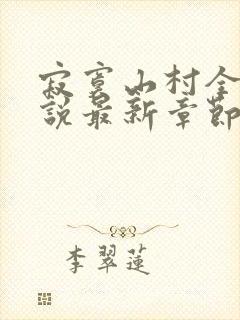 寂寞山村全
說最新章節
李翠蓮